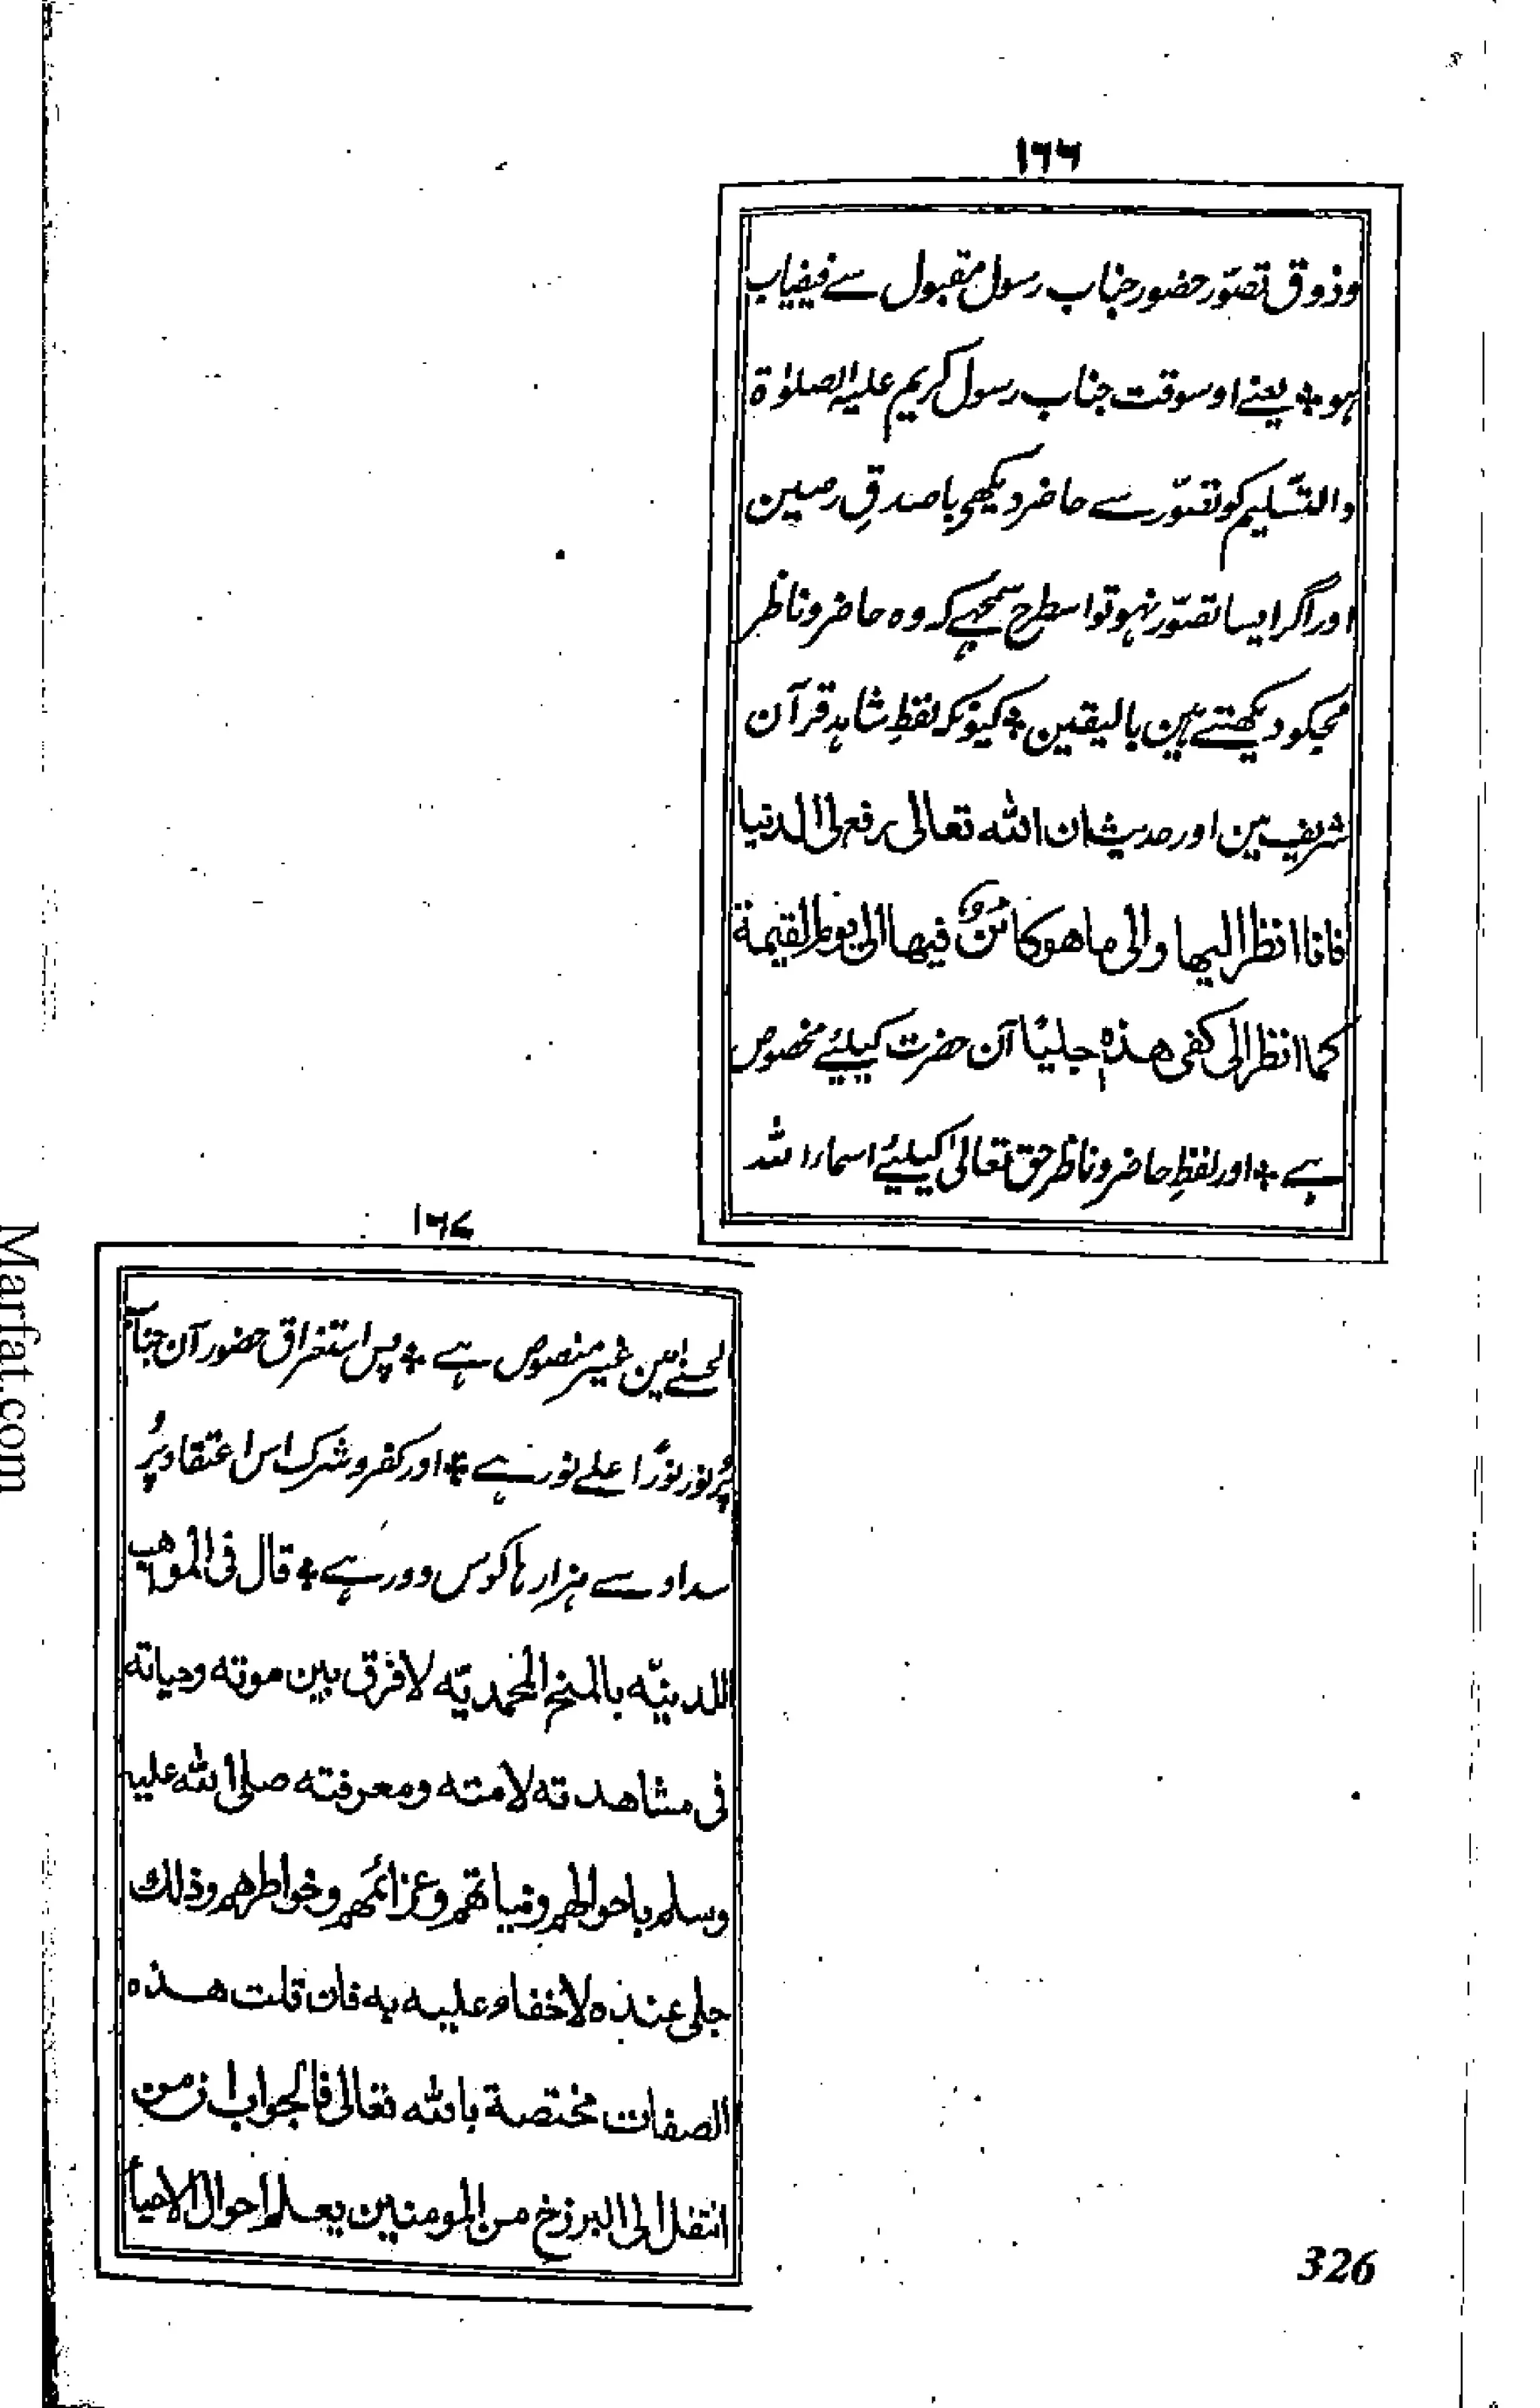 ۱۶۶
وذوق تصوّر حضور جناب رسول مقبول سے فیضیاب
ہو * یعنے اوسوقت جناب رسول کریم علیہ الصلوٰۃ
والتسلیم کو تصوّر سے حاضر دیکھے با صدقِ رصین
اور اگر ایسا تصوّر نہو تو اسطرح سمجہے کہ وہ حاضر و ناظر
مجکو دیکھتے ہین بالیقین * کیونکہ لفظِ شاہد قرآن
شریف مین اور حدیث ان الله تعالى رفع لى الدنيا
فانا انظر اليها والى ما هو كائن فيها الى يوم القيمة
كما انظر الى كفى هذه جليّا آن حضرت کیلیئے مخصوص
ہے * اور لفظِ حاضر و ناظر حق تعالیٰ کیلیئے اسماء الله
۱۶۷
الحسنے مین غیر منصوص ہے * پس استغراق حضور آن جناب
پُر نور نورًا علے نور ہے * اور کفر و شرک اس اعتقاد پُر
سداد سے ہزارہا کوس دور ہے * قال فى المواهب
اللدنيّه بالمنح المحمديّه لا فرق بين موته وحياته
فى مشاهدته لامته ومعرفته صلى الله عليه
وسلم باحوالهم ونياتهم وعزائمهم وخواطرهم وذلك
جلى عنده لا خفاء عليه به فان قلت هذه
الصفات مختصة بالله تعالى فالجواب ان من
انتقل الى البرزخ من المومنين يعلم احوال الاحيا
326
Marfat.com